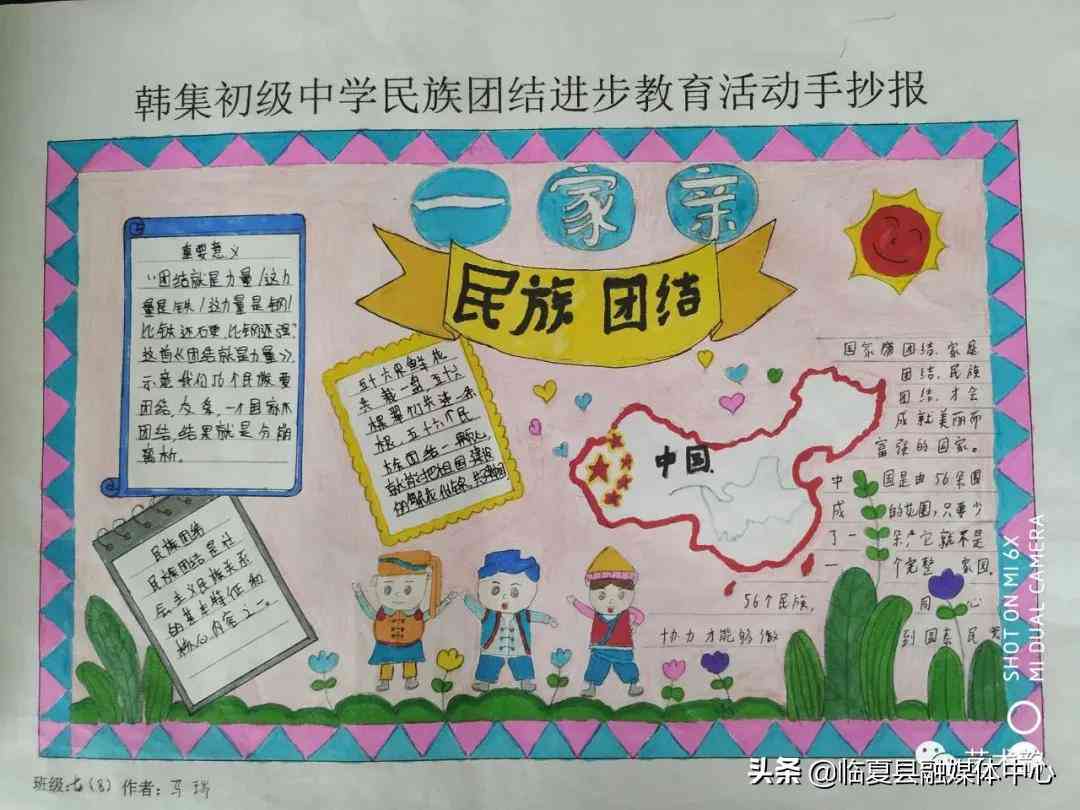 韩集初级中学民族团结进步教育活动手抄报
一家亲
民族 团结
重要意义
"团结就是力量/这力
量是铁/这力量是钢/
比铁还硬,比钢还强"
这首《团结就是力量》,
示意我们56个民族要
团结、友爱,一个国家不
团结,结果就是分崩
离析。
五十六朵鲜花
共栽一盆,五十六
棵翠竹共连一条
根,五十六个民
族团结一颗心,
就能把祖国建设
的繁花似锦,
民族团结
民族团结是社
会主义民族关系
的基本特征和
核心内容之一。
中国
国家需团结、家是
团结,民族
团结,才会
成就美丽而
富强的国家。
中国是由56朵围
成的花园,只要少
了一朵,它就不是
一个完整家园。
56个民族,同心
协力才能够做
到国泰民
班级:七(8) 作者:马瑞
SHOT ON MI 6X
MI DUAL CAMERA
头条 @临夏县融媒体中心